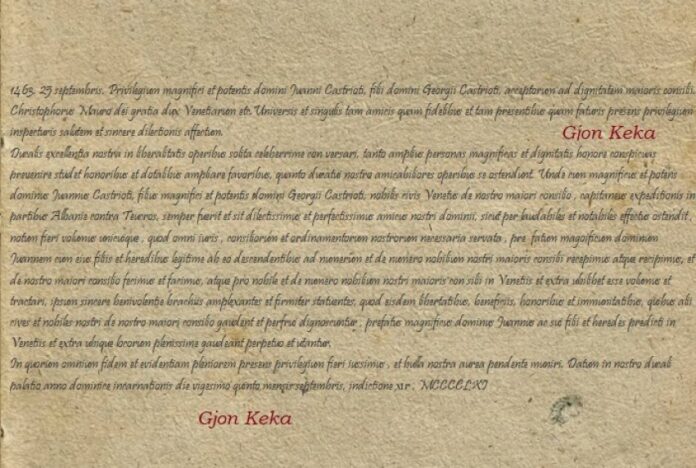 1463. 25 septembris. Privilegium magnifici et potentis domini Iuanni Castrioti, filii domini Georgii Castrioti, acceptorum ad dignitatem maioris consilii.
Christophorus Mauro dei gratia dux Venetiarum etc. Universis et singulis tam amicis quam fidelibus et tam presentibus quam futuris presens privilegium
inspecturis salutem et sincere dilectionis affectum.
Gjon Keka
Ducalis excellentia nostra in liberalitatis operibus solita celeberrime con versari, tanto amplius personas magnificas et dignitatis honore conspicuas
prevenire stud et honoribus et dotalibus ampliare favoribus, quanto ducatui nostro amicabiliores operibus se ostendunt. Unde cum magnificus et potens
dominus Iuannus Castrioti, filius magnifici et potentis domini Georgii Castrioti, nobilis civis Venetus de nostro maiori consilio, capitaneus expeditionis in
partibus Albanie contra Teucros, semper fuerit et sit dilectissimus et perfectissimus amicus nostri dominii, sicut per laudabiles et notabiles effectus ostendit,
notum fieri volumus unicuique, quod omni iuris, consiliorum et ordinamentorum nostrorum necessaria servata, pre fatum magnificum dominum
Iuannem cum eius filiis et heredibus legitime ab eo descendentibus ad numerum et de numero nobilium nostri maioris consilii recepimus atque recipimus, et
de nostro maiori consilio fecimus et facimus, atque pro nobile et de numero nobilium nostri maioris con silii in Venetiis et extra ubilibet esse volumus et
tractari, ipsum sincere benivolentie brachiis amplexantes et firmiter statuentes, quod eisdem libertatibus, beneficiis, honoribus et immunitatibus, quibus alii
cives et nobiles nostri de nostro maiori consilio gaudent et perfrui dignoscuntur, prefatus magnificus dominus Iuannus ac sui filii et heredes predicti in
Venetiis et extra ubique locorum plenissime gaudeant perpetuo et utantur.
In quorum omnium fidem et evidentiam pleniorem presens privilegium fieri iussimus, et bulla nostra aurea pendente muniri. Datum in nostro ducali
palatio anno dominice incarnationis die vigesimo quinto mensis septembris, indictione XII, MCCCCLXI
Gjon Keka